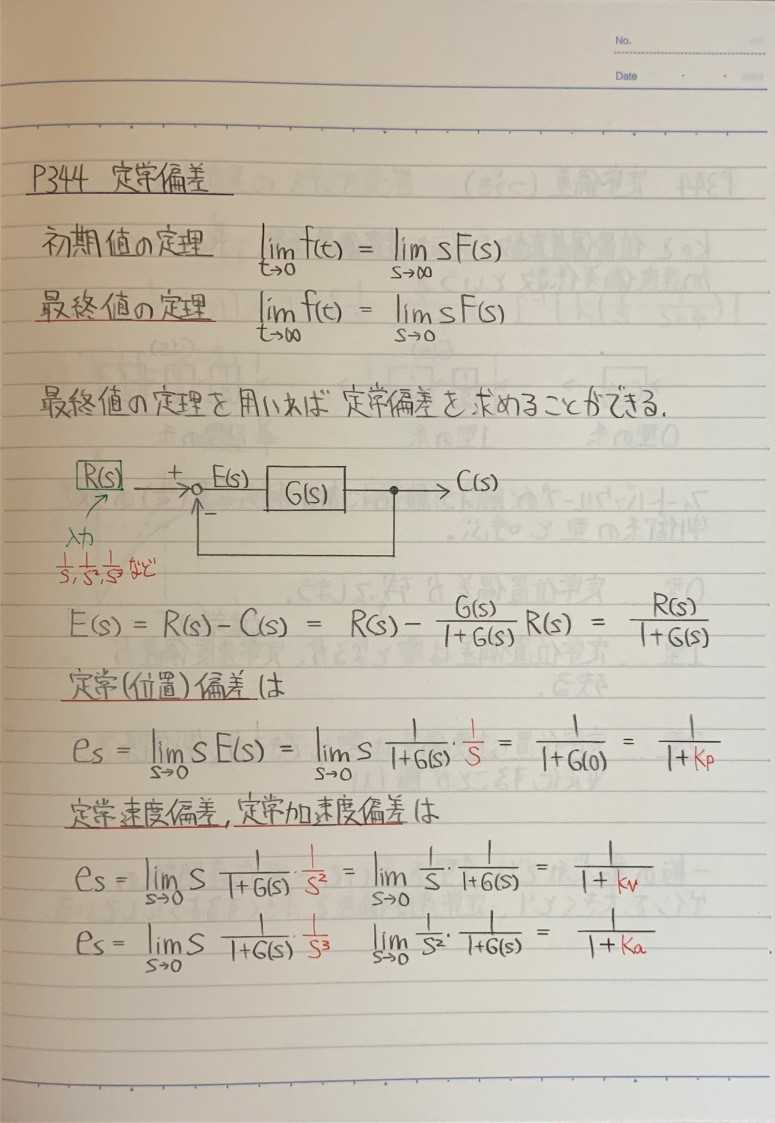 No.
Date
P344 定学偏差
初期値の定理 lim_{t→0} f(t) = lim_{s→∞} sF(s)
最終値の定理 lim_{t→∞} f(t) = lim_{s→0} sF(s)
最終値の定理を用いれば 定学偏差を求めることができる.
R(s) + E(s) G(s) C(s)
−
入力
1/s, 1/s², 1/s³ など
E(s) = R(s) − C(s) = R(s) − G(s)/(1+G(s)) R(s) = R(s)/(1+G(s))
定常(位置)偏差は
es = lim_{s→0} s E(s) = lim_{s→0} s 1/(1+G(s)) · 1/s = 1/(1+G(0)) = 1/(1+Kp)
定常速度偏差, 定常加速度偏差は
es = lim_{s→0} s 1/(1+G(s)) · 1/s² = lim_{s→0} 1/s · 1/(1+G(s)) = 1/(1+Kv)
es = lim_{s→0} s 1/(1+G(s)) · 1/s³ lim_{s→0} 1/s² · 1/(1+G(s)) = 1/(1+Ka)